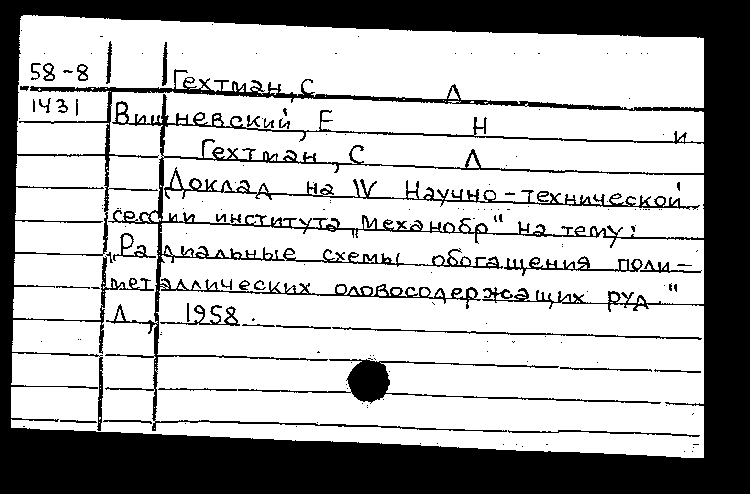 58-8 Гехтман, С Л
1431 Вишневский, Е Н и
Гехтман, С Л
Доклад на IV Научно-технической
сессии института „Механобр" на тему:
„Радиальные схемы обогащения поли-
металлических оловосодержащих руд."
Л., 1958.